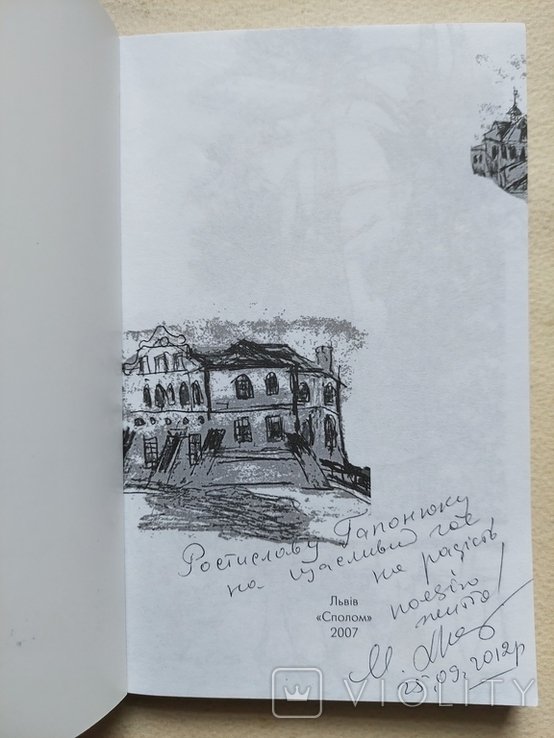 Ростиславу Гапонюку
на щасливий час
на радість
поезію
життя!
Львів
«Сполом»
2007
25.09.2012р
VIOLITY